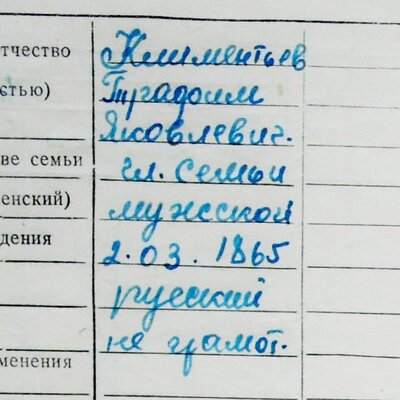 тчество Климентьев
стью)
Яковлевич.
ве семьи гл. семьи
енский) мужской
дения 2.03.1865
русский
не грамот.
менения